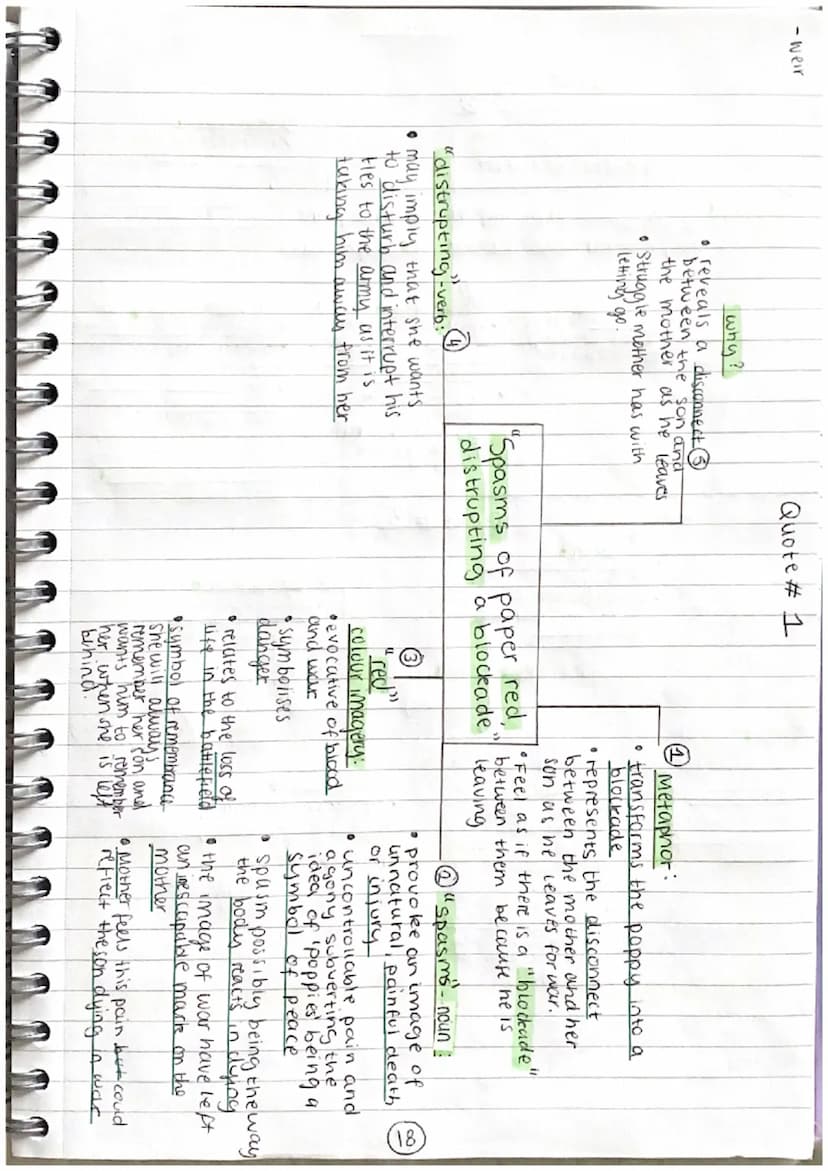 - Weir
Quote # 1
why?
• reveals a disconnect ⑤
between the son and
the mother as he leaves
• struggle mother has with
letting go.
① Metaphor:
• transforms the poppy into a
blockade
• represents the disconnect
between the mother and her
son as he leaves for war.
• Feel as if there is a "blockade"
between them because he is
leaving
"Spasms of paper red,
distrupting a blockade"
"distrupting"-verb: ④
• may imply that she wants
to disturb and interrupt his
ties to the army as it is
taking him away from her
③
"red"
colour imagery:
• evocative of blood
and war
• symbolises
danger
• relates to the loss of
life in the battlefield
• symbol of remembrance
she will always
remember her son and
wants him to remember
her when she is left
behind.
② "spasms" - noun:
• provoke an image of
unnatural, painful death
or injury
• uncontrollable pain and
agony subverting the
idea of 'poppies' being a
symbol of peace
• spasm possibly being the way
the body reacts in dying
• the image of war have left
an inescapable mark on the
mother
• Mother feels this pain but could
reflect the son dying in war
18